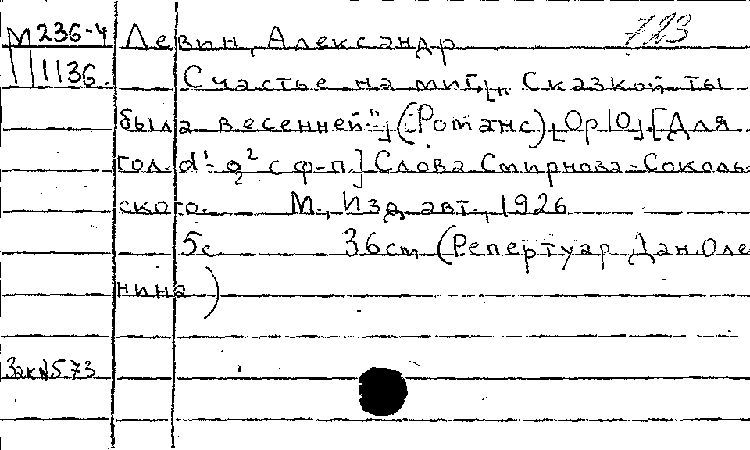 М 236-4 Левин, Александр 723
1136. Счастье на миг [„Сказкой ты
была весенней"] (Романс), [Op 10]. [Для
гол. d¹-g² с ф-п.] Слова Смирнова-Соколь-
ского. М., Изд. авт., 1926
5с. 36cm (Репертуар Дан. Оле-
нина)
Зак №573